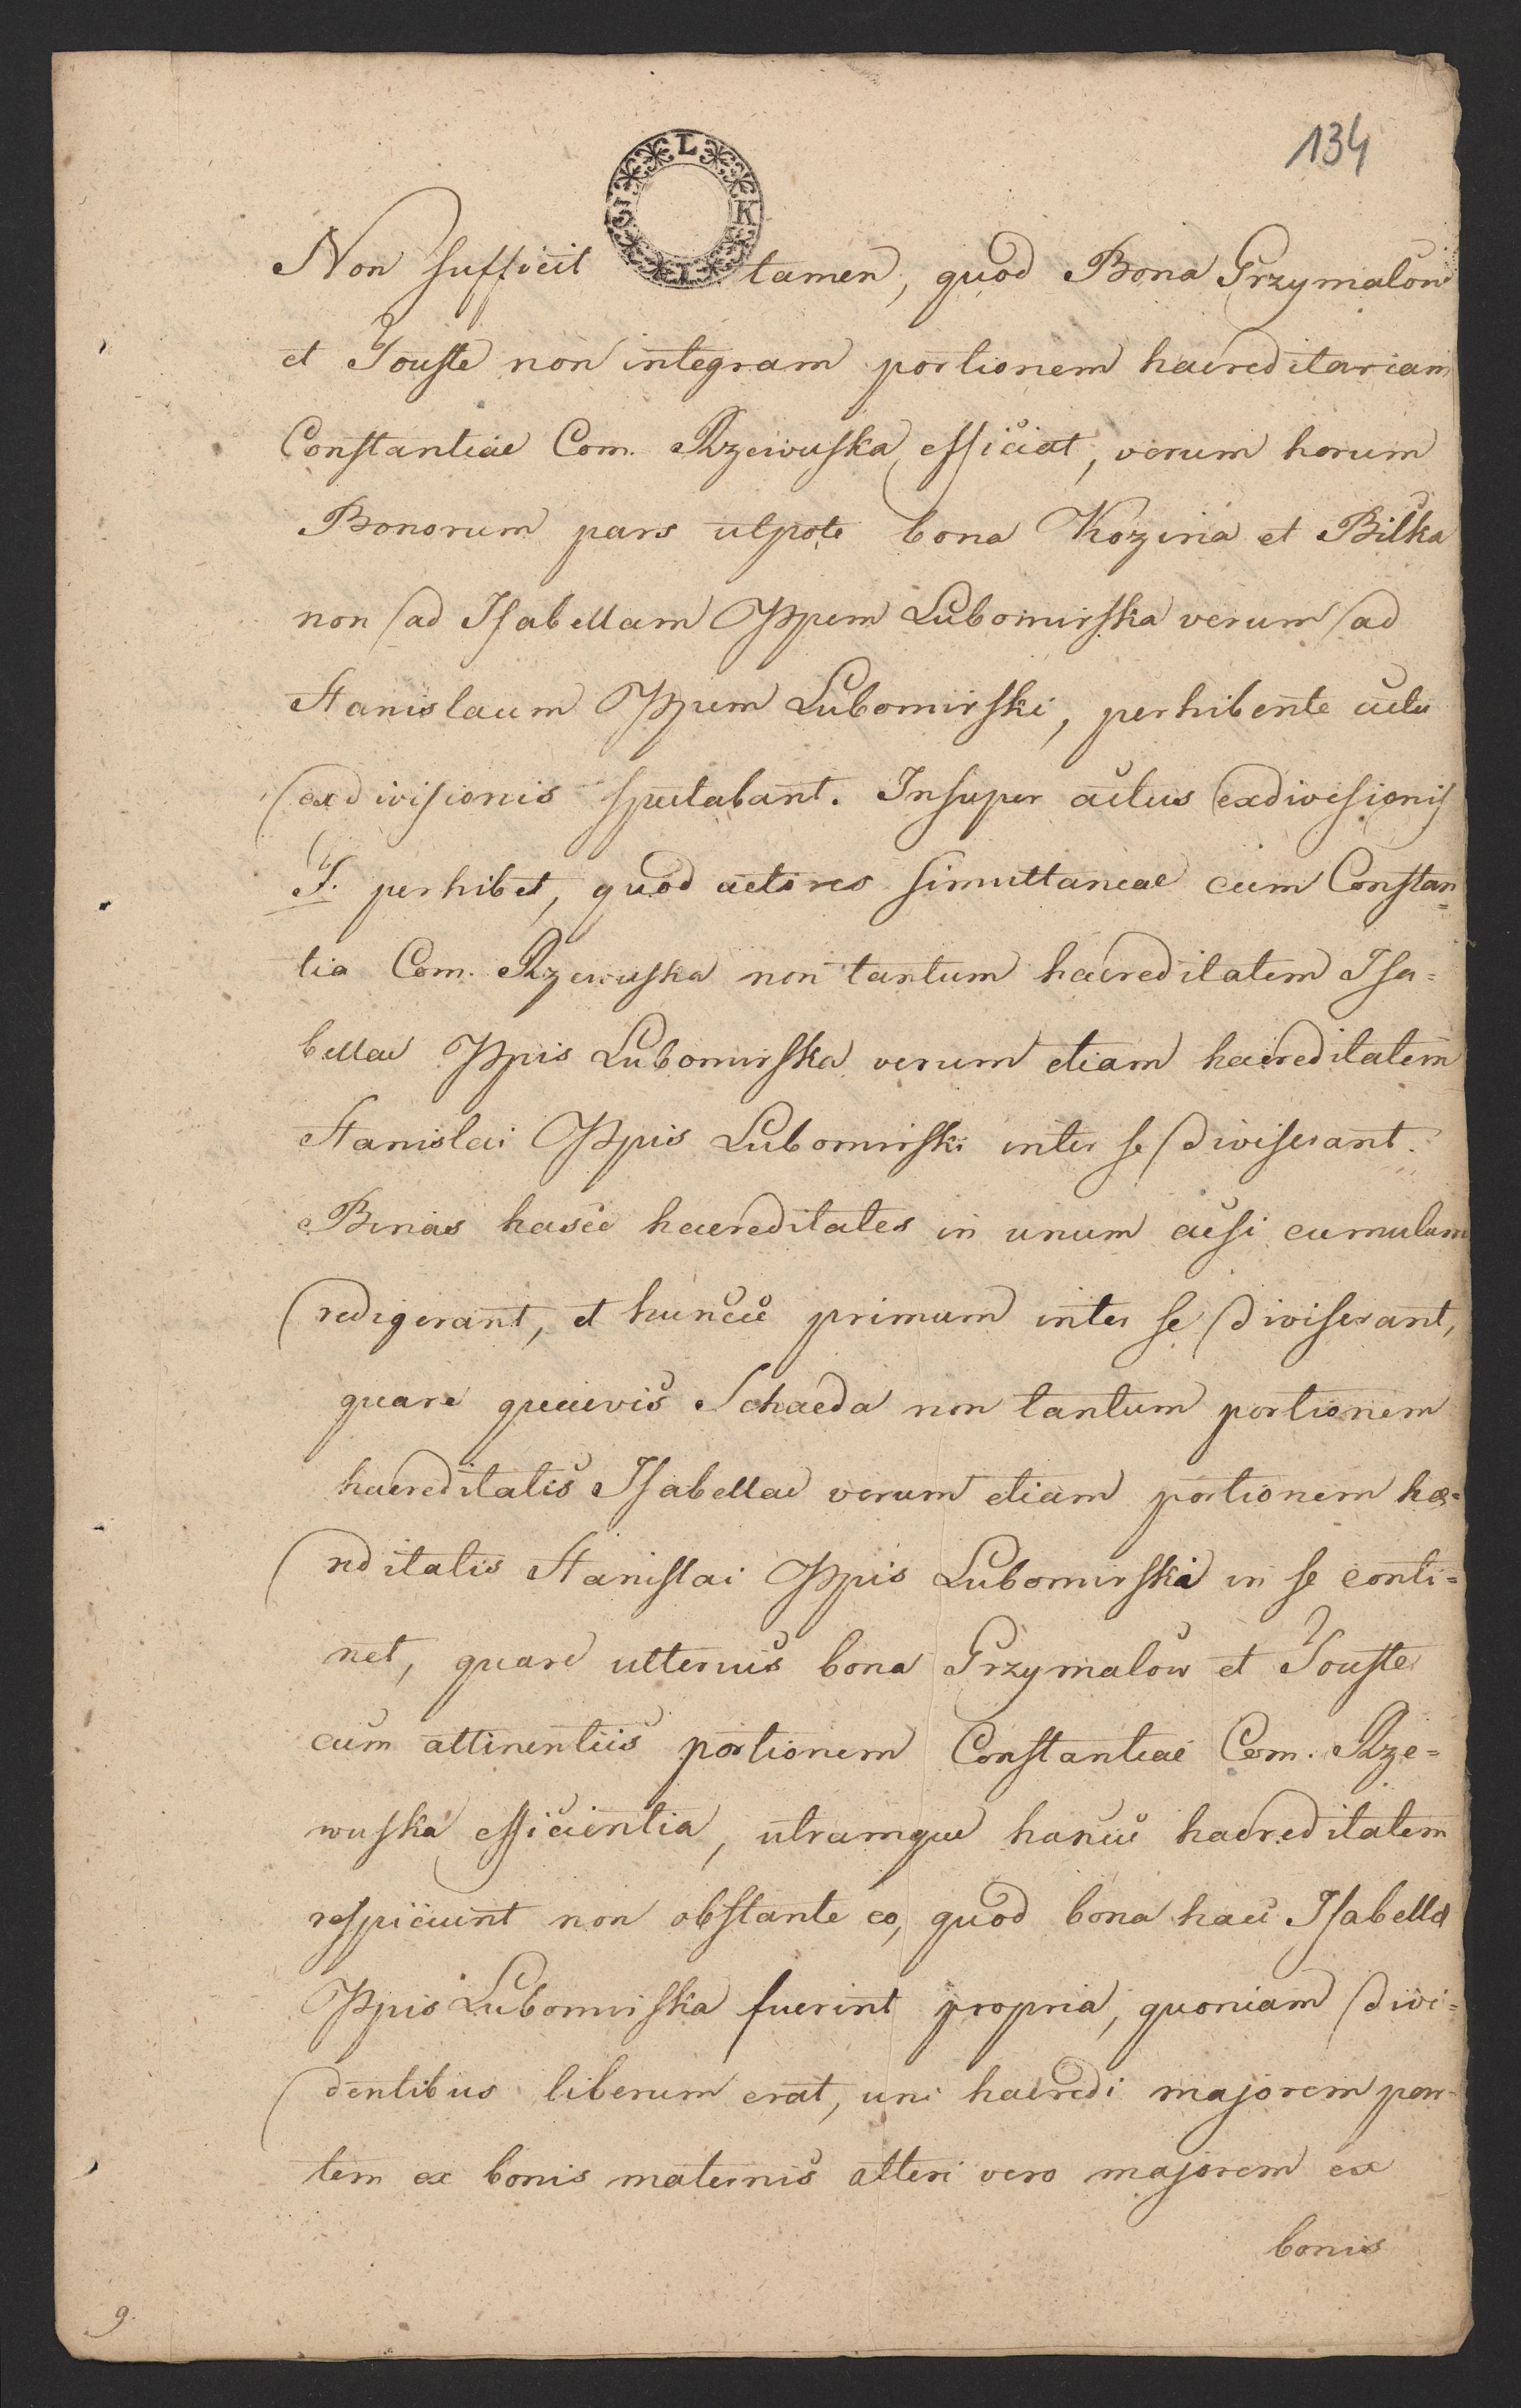 134
L K I S
Non sufficit tamen, quod Bona Grzymalów
et Touste non integram portionem haereditariam
Constantiae Com. Rzewuska efficiat, verum horum
Bonorum pars utpote bona Kozina et Bilka
non ad Isabellam Ppem Lubomirska verum ad
Stanislaum Ppem Lubomirski, perhibente actu
exdivisionis spectabant. Insuper actus exdivisionis
F. perhibet, quod actores simultaneae cum Constan=
tia Com. Rzewuska non tantum haereditatem Isa=
bellae Ppis Lubomirska verum etiam haereditatem
Stanislai Ppis Lubomirski inter se diviserant.
Binas hasce haereditates in unum acsi cumulum
redigerant, et huncce primum inter se diviserant,
quare quaevis Schaeda non tantum portionem
haereditatis Isabellae verum etiam portionem hae=
reditatis Stanislai Ppis Lubomirski in se conti=
net, quare ulterius bona Grzymalów et Touste
cum attinentiis portionem Constantiae Com. Rze=
wuska efficientia, utramque hancce haereditatem
respiciunt non obstante eo, quod bona haec Isabella
Ppis Lubomirska fuerint propria, quoniam divi=
dentibus liberum erat, uni haeredi majorem par=
tem ex bonis maternis alteri vero majorem ex
bonis
9.